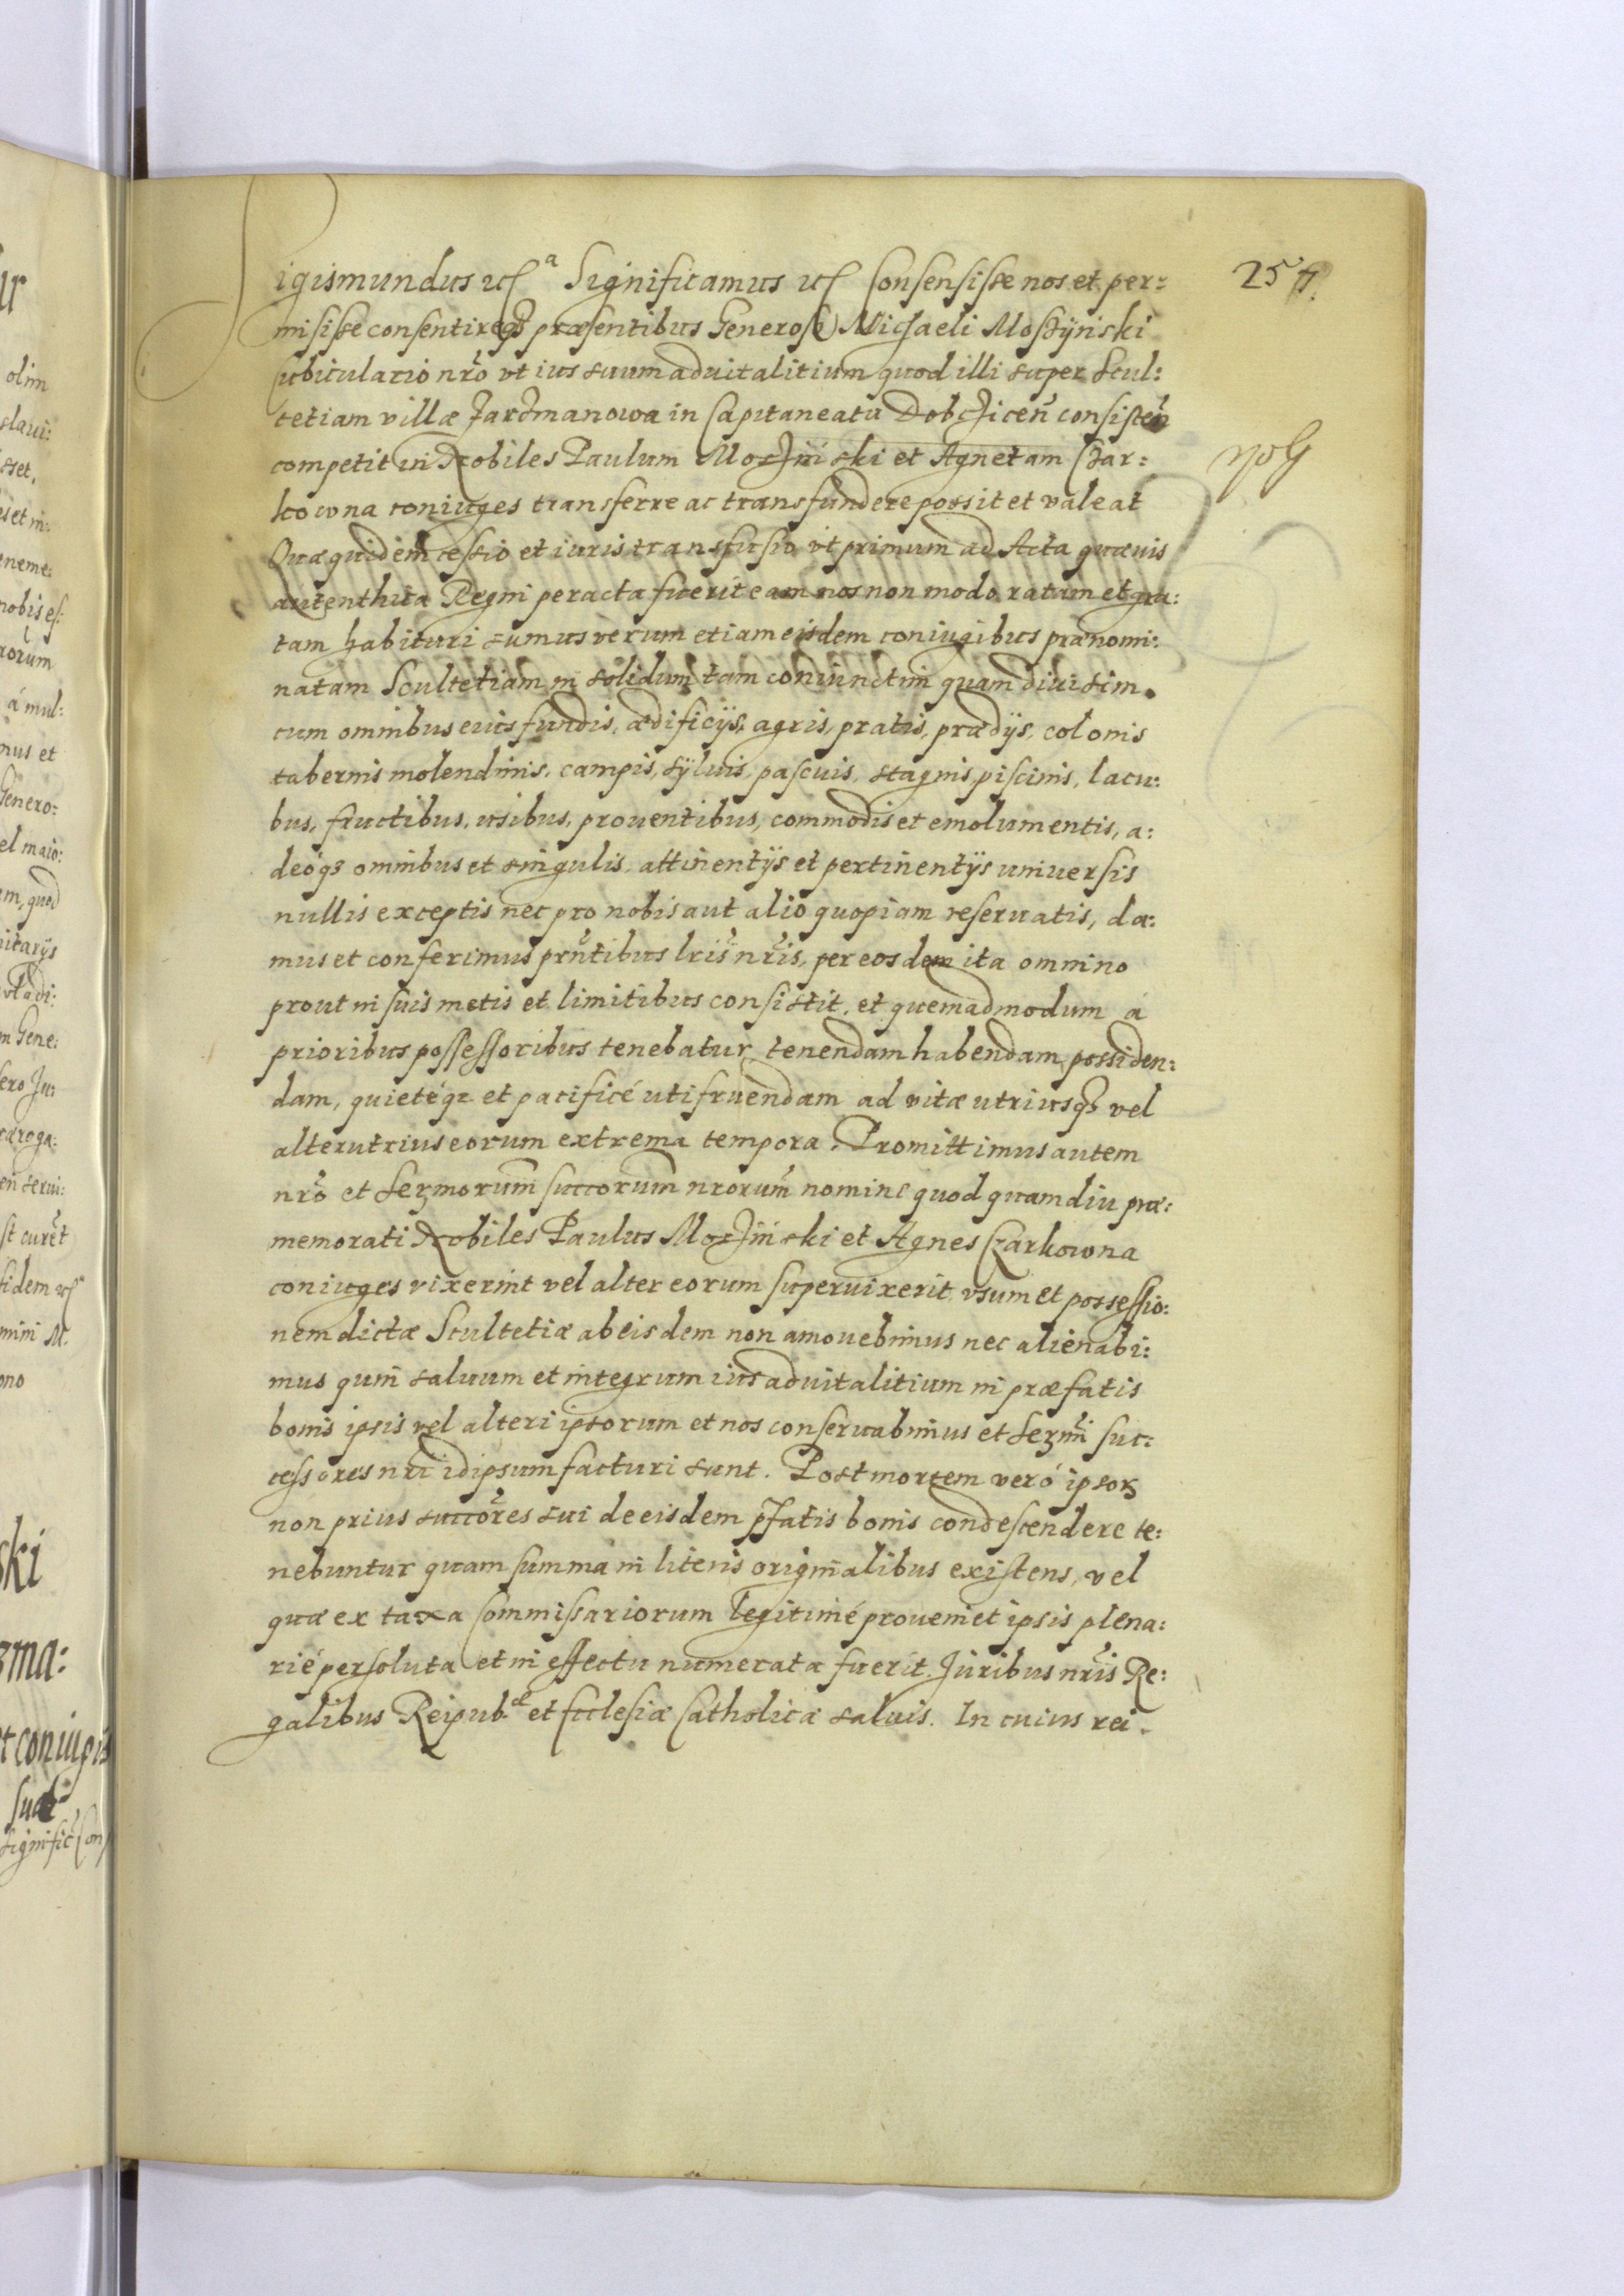 257.
Sigismundus etc^a Significamus etc Consensisse nos et per:
misisse consentireq3 præsentibus Generoso Michaeli Moszÿnski
Cubiculario nr̃o vt ius suum advitalitium quod illi super Scul:
tetiam villæ Jarzmanowa in Capitaneatu Dobczicen̄ consisten̄
competit in Nobiles Paulum Moszinski et Agnetam Czar:
kowna coniuges transferre ac transfundere possit et valeat
Quæquidem cessio et iuris transfusio vt primum ad Acta quævis
autenthica Regni peracta fuerit eam nos non modo ratam et gra:
tam habituri sumus verum etiam eisdem coniugibus prænomi:
natam Scultetiam in solidum tam coniunctim quam diuisim
cum omnibus euis fundis, ædificijs, agris, pratis, prædijs, colonis
tabernis molendinis, campis, sÿluis, pascuis, stagnis, piscinis, lacu:
bus, fructibus, usibus, prouentibus, commodis et emolumentis, a:
deóq3 omnibus et singulis attinentijs et pertinentijs uniuersis
nullis exceptis nec pro nobis aut alio quopiam reseruatis, da:
mus et conferimus prñtibus lr̃is nr̃is, per eosdem ita omnino
prout in suis metis et limitibus consistit, et quemadmodum á
prioribus possessoribus tenebatur, tenendam habendam possiden:
dam, quietéq3 et pacificé utifruendam ad vitæ utriusq3 vel
alterutrius eorum extrema tempora. Promittimus autem
nr̃o et Serm̄orum succorum nrorum̄ nomine quod quamdiu præ:
memorati Nobiles Paulus Moszinski et Agnes Czarkowna
coniuges vixerint vel alter eorum supervixerit vsum et possessio:
nem dictæ Scultetiæ ab eisdem non amouebimus nec alienabi:
mus quin saluum et integrum ius advitalitium in præfatis
bonis ipsis vel alteri ipsorum et nos conseruabimus et Serm̄i suc:
cessores nr̃i idipsum facturi sunt. Post mortem veró ipsor3
non prius succores sui de eisdem pfatis bonis condescendere te:
nebuntur quam summa in literis originalibus existens, vel
quæ ex taxa Commissariorum legitimé proueniet ipsis plena:
rié persoluta et in effectu numerata fuerit. Juribus nr̃is Re:
galibus Reipub.^æ et Ecclesiæ Catholicæ saluis. In cuius rei.